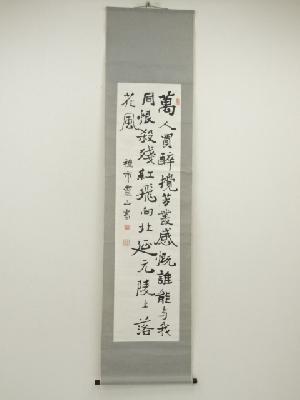 萬人買醉攪芳叢感慨誰能与我
同恨殺殘紅飛向北延元陵上落
花風
市雲山書